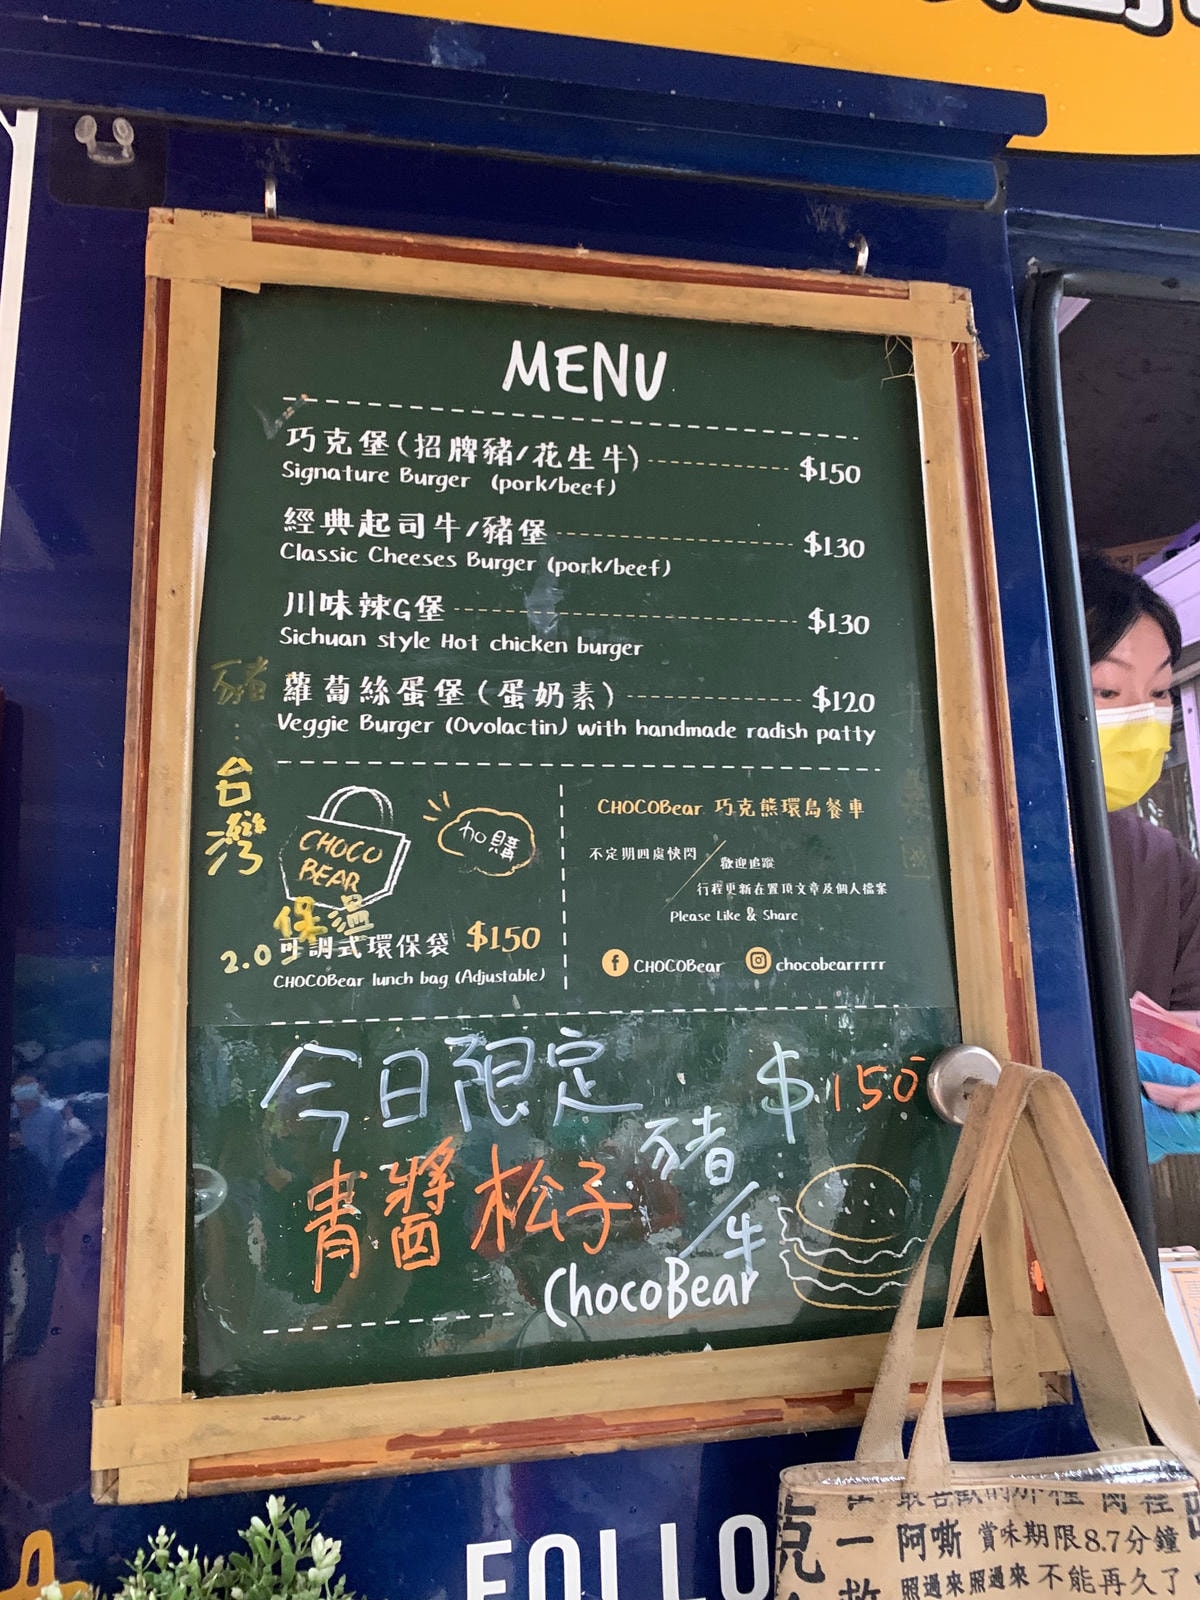 MENU
巧克堡(招牌豬/花生牛) $150
Signature Burger (pork/beef)
經典起司牛/豬堡 $130
Classic Cheeses Burger (pork/beef)
川味辣G堡 $130
Sichuan style Hot chicken burger
蘿蔔絲蛋堡(蛋奶素) $120
Veggie Burger (Ovolactin) with handmade radish patty
豬
台灣
CHOCO
BEAR
加購
保溫
2.0可調式環保袋 $150
CHOCOBear lunch bag (Adjustable)
CHOCOBear 巧克熊環島餐車
不定期四處快閃
歡迎追蹤
行程更新在置頂文章及個人檔案
Please Like & Share
CHOCOBear
chocobearrrrr
今日限定 $150
青醬松子 豬/牛
ChocoBear
FOLLO
一
阿嘶 賞味期限8.7分鐘
照過來照過來 不能再久了